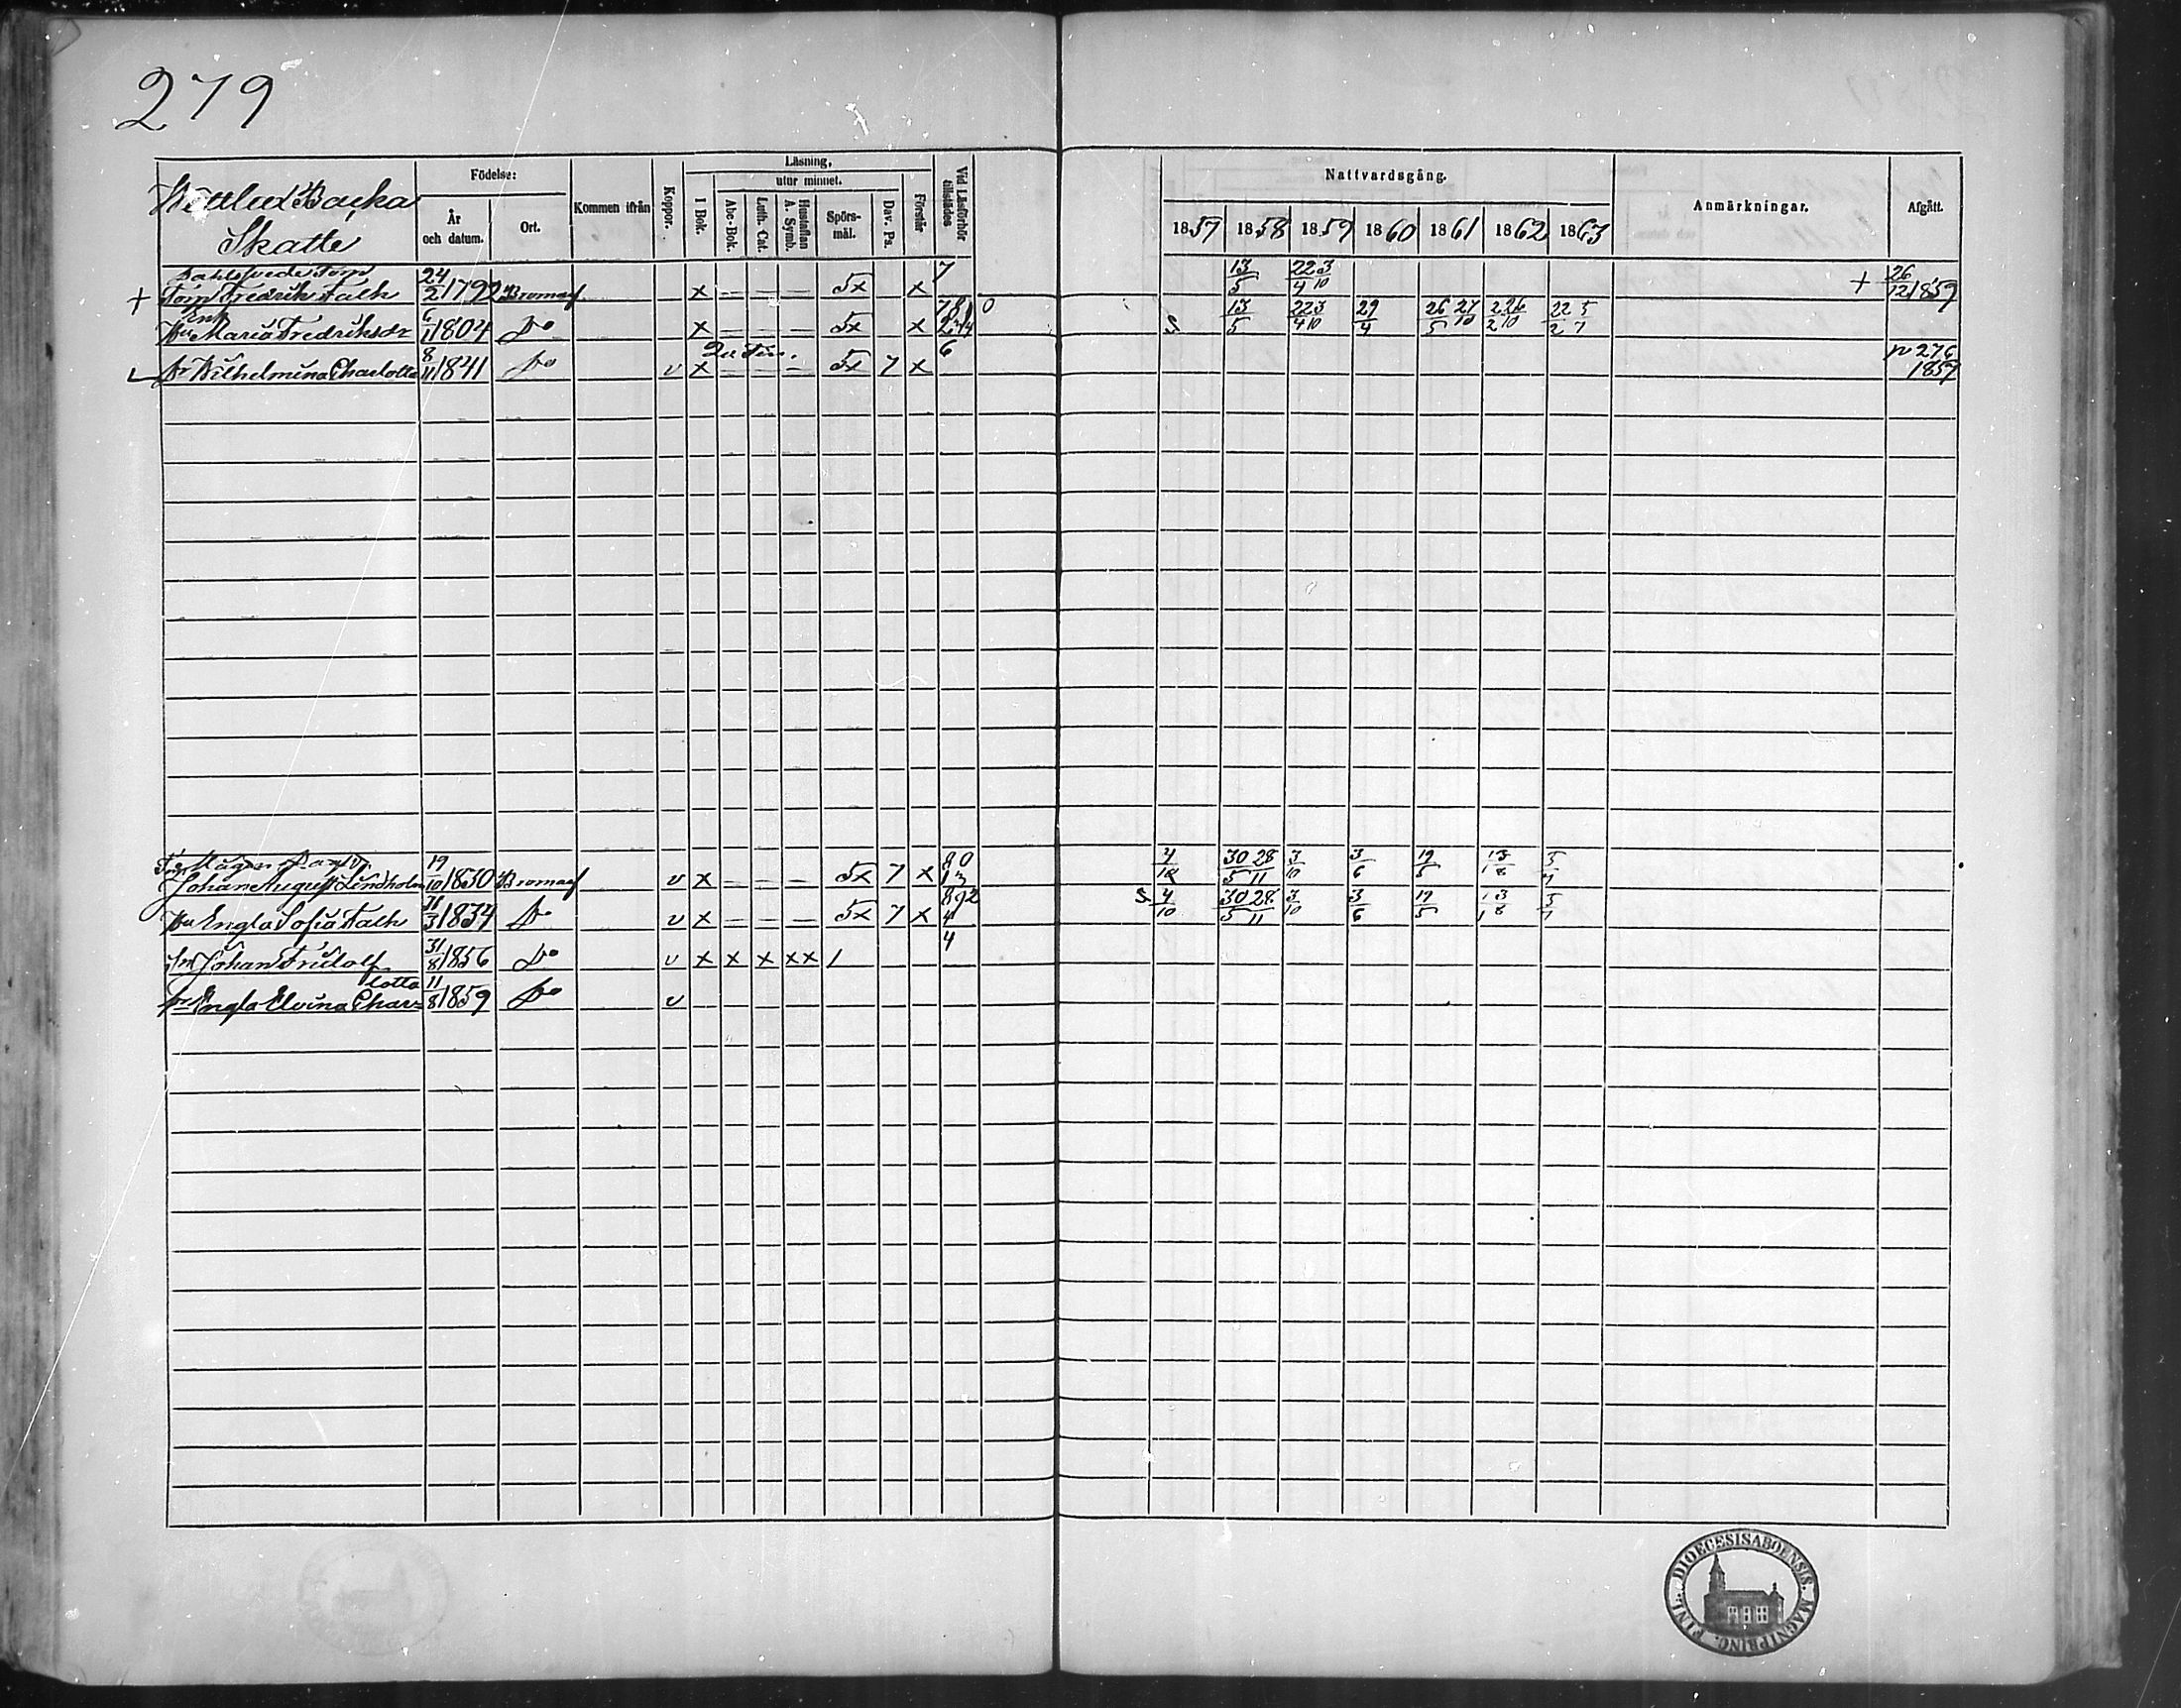 279
Backa
Skatte
Födelse:
År
och datum.
Ort.
Kommen ifrån
Koppor.
Läsning,
utur minnet.
I Bok.
Abc-Bok.
Luth. Cat.
Hustaflan
A. Symb.
Spörs-
mål.
Dav. Ps.
Förstår
Vid Läsförhör
tillstädes
Nattvardsgång.
1857 1858 1859 1860 1861 1862 1863
Anmärkningar.
Afgått.
Torp
+ Torp Fredrik Falk 24/2 1792 Bromarf x — — — 5x x 7 13/5 22/4 3/10 + 26/12 1859
Enk
Hu Maria Fredriksdr 6/1 1804 Do x — — — 5x x 13/5 22/4 3/10 29/4 26/5 27/10 2/2 26/10 22/2 5/7
Dr Wilhelmina Charlotta 8/11 1841 Do v x — — — 5x 7 x 6 p 276
1857
Johan August Lindholm 19/10 1830 Bromarf v x — — — 5x 7 x 4/10 30/5 28/11 3/10 3/6 19/5 5/7
Hu Engla Sofia Falk 1834 Do v x — — — 5x 7 x 4/10 30/5 28/11 3/10 3/6 19/5 5/7
Sn Johan Fridolf 31/8 1856 Do v x x x xx 1 4
lotta
Dr Engla Elvina Char= 11/8 1859 Do v
FINL. DIOECESIS ABOENSIS. MAGNI PRINC.